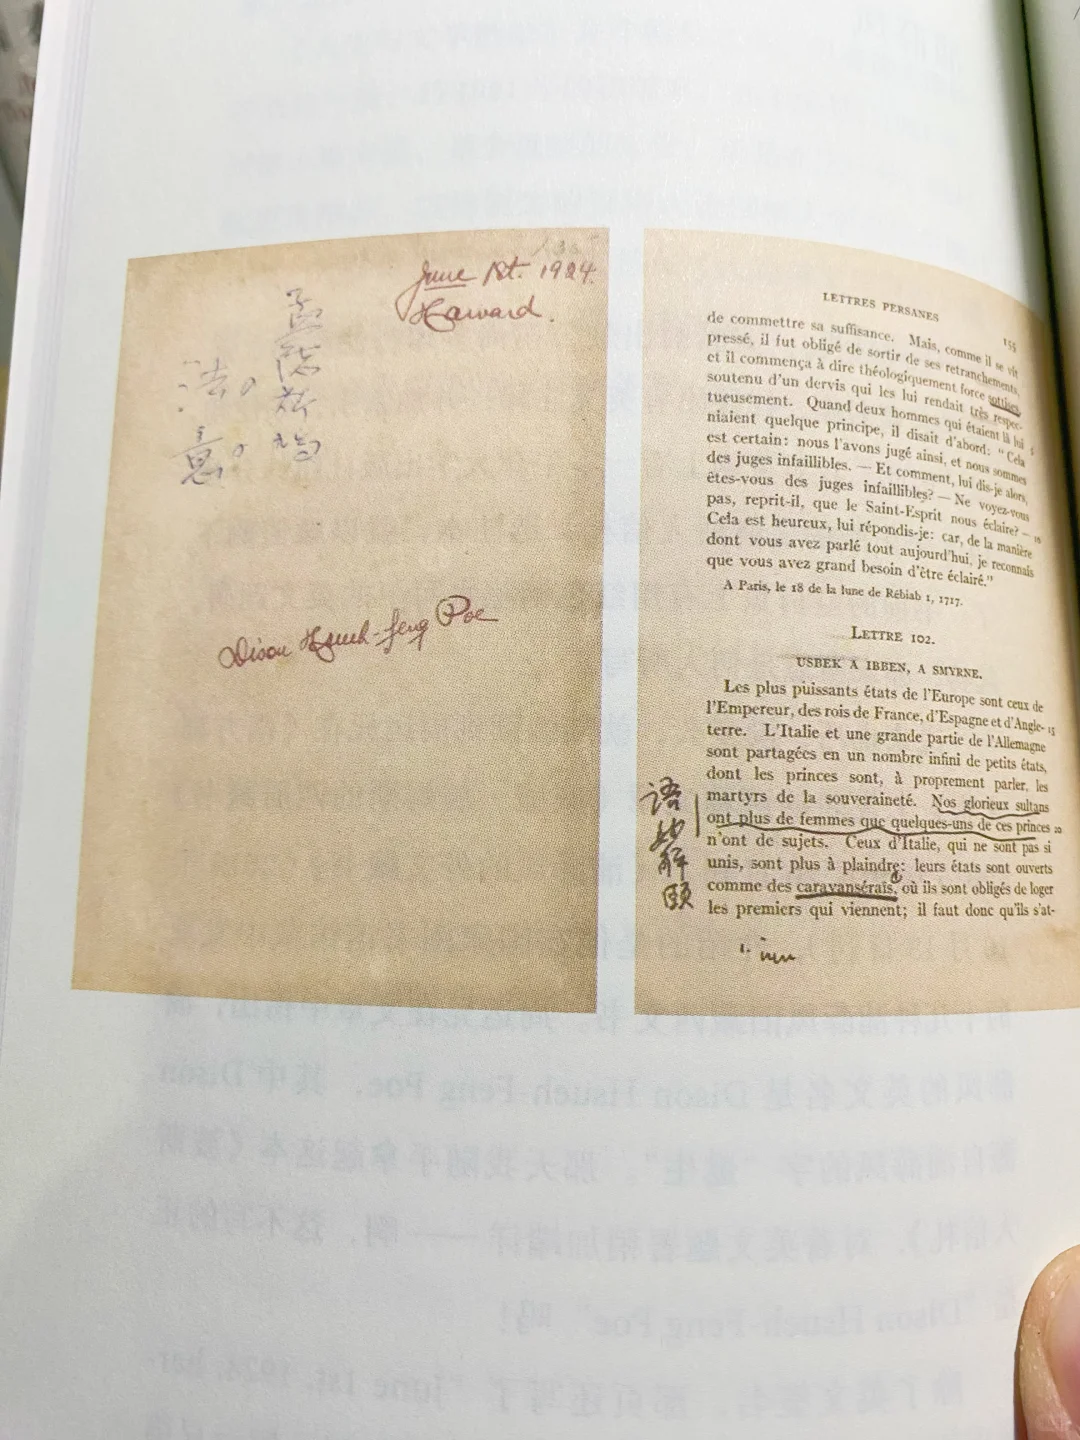 June 1st. 1924.
Harvard.
孟德斯鸠
法。
意。
Dison Hsueh-feng Poe
LETTRES PERSANES
155
de commettre sa suffisance. Mais, comme il se vit
pressé, il fut obligé de sortir de ses retranchements,
et il commença à dire théologiquement force sottises,
soutenu d'un dervis qui les lui rendait très respec-
tueusement. Quand deux hommes qui étaient là lui
niaient quelque principe, il disait d'abord: "Cela
est certain: nous l'avons jugé ainsi, et nous sommes
des juges infaillibles. — Et comment, lui dis-je alors,
êtes-vous des juges infaillibles? — Ne voyez-vous
pas, reprit-il, que le Saint-Esprit nous éclaire? —
Cela est heureux, lui répondis-je: car, de la manière
dont vous avez parlé tout aujourd'hui, je reconnais
que vous avez grand besoin d'être éclairé."
A Paris, le 18 de la lune de Rébiab 1, 1717.
LETTRE 102.
USBEK A IBBEN, A SMYRNE.
Les plus puissants états de l'Europe sont ceux de
l'Empereur, des rois de France, d'Espagne et d'Angle- 15
terre. L'Italie et une grande partie de l'Allemagne
sont partagées en un nombre infini de petits états,
dont les princes sont, à proprement parler, les
martyrs de la souveraineté. Nos glorieux sultans
ont plus de femmes que quelques-uns de ces princes 20
n'ont de sujets. Ceux d'Italie, qui ne sont pas si
unis, sont plus à plaindre: leurs états sont ouverts
comme des caravansérais, où ils sont obligés de loger
les premiers qui viennent; il faut donc qu'ils s'at-
语妙解颐
1. inn